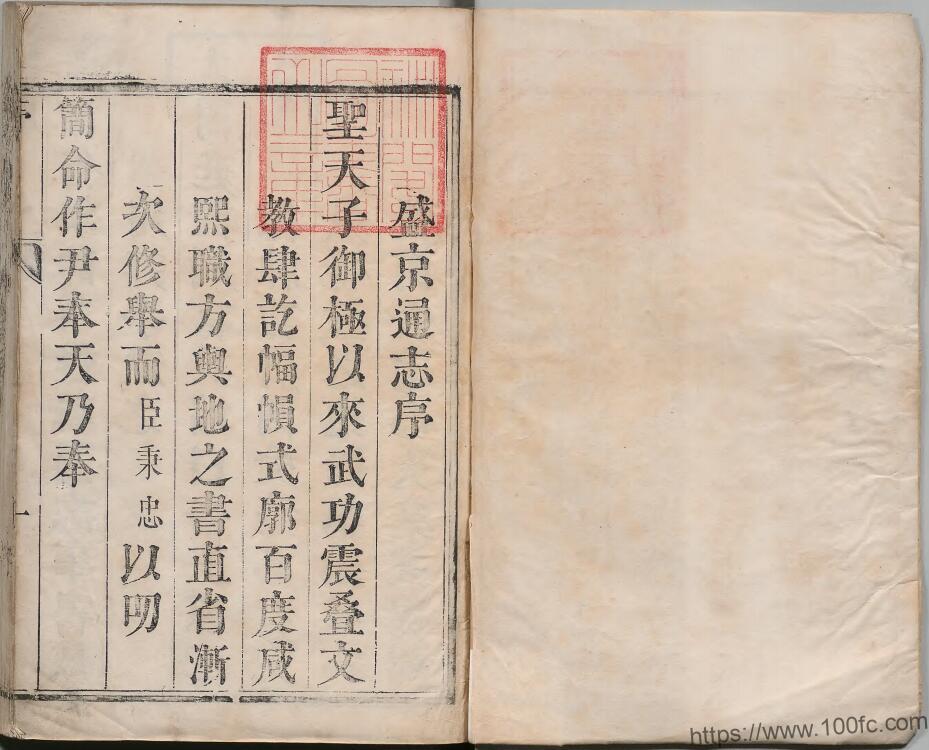 盛京通志序
聖天子御極以來武功震叠文
教肆訖幅幀式廓百度咸
熙職方輿地之書直省漸
次修舉而臣秉忠以叨
簡命作尹奉天乃奉
序
一
https://www.100fc.com